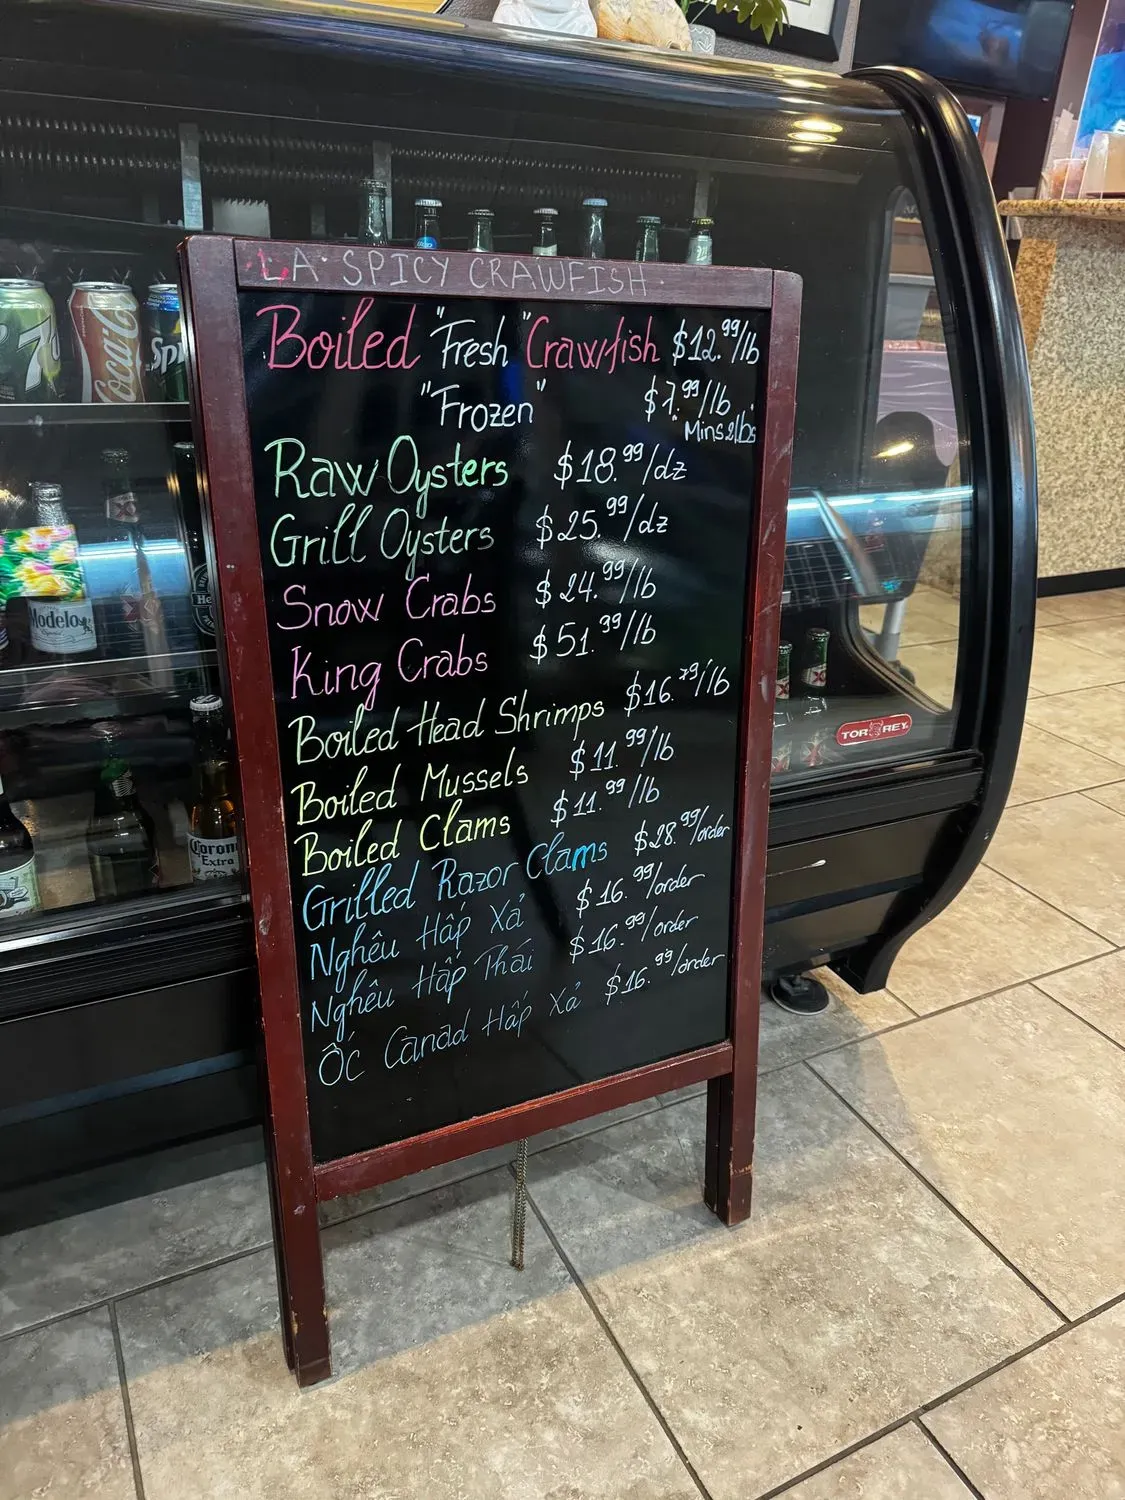 LA SPICY CRAWFISH
Boiled "Fresh" Crawfish $12.99/lb
"Frozen" $7.99/lb
Mins 2lbs
Raw Oysters $18.99/dz
Grill Oysters $25.99/dz
Snow Crabs $24.99/lb
King Crabs $51.99/lb
Boiled Head Shrimps $16.99/lb
Boiled Mussels $11.99/lb
Boiled Clams $11.99/lb
Grilled Razor Clams $28.99/order
Nghêu Hấp Xả $16.99/order
Nghêu Hấp Thái $16.99/order
Ốc Canad Hấp Xả $16.99/order
TORREY
7
Coca-Co
Sp
Modelo
Especial
He
Corona
Extra